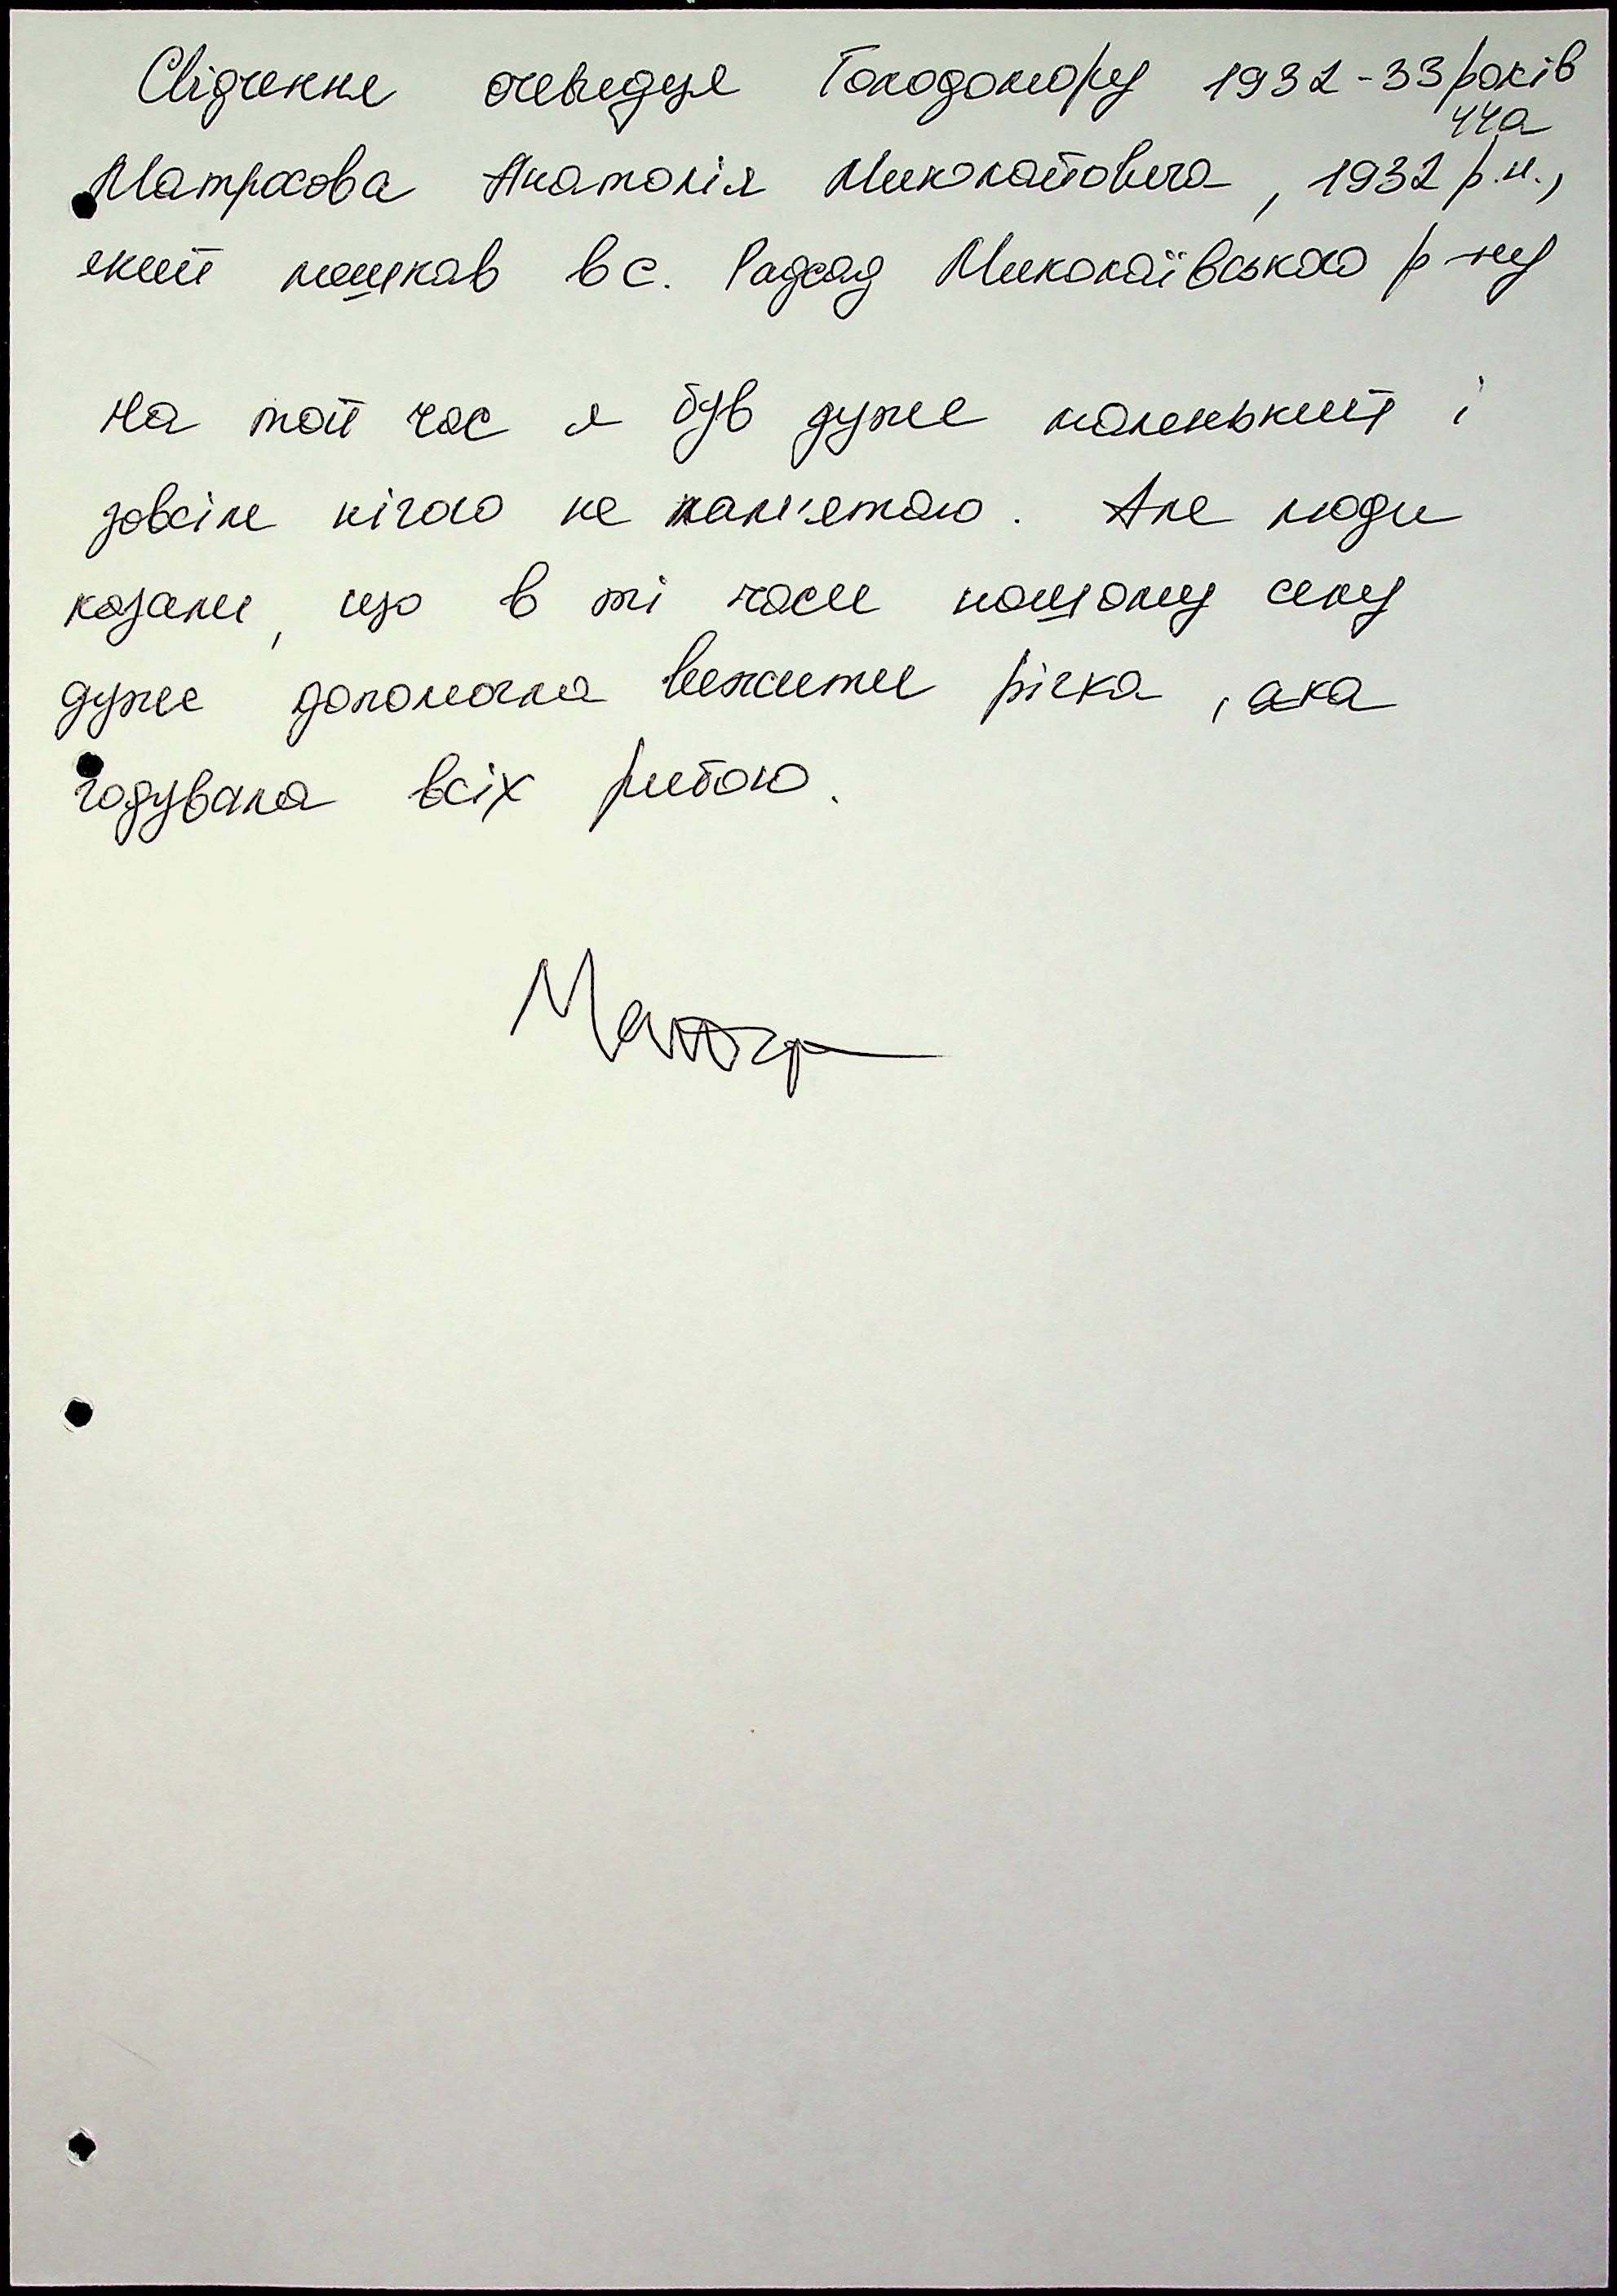 Свідчення очевидця Голодомору 1932-33 років
44а
Матросова Анатолія Миколайовича, 1932 р.н.,
який мешкав в с. Радсад Миколаївського р-ну
На той час я був дуже маленький і
зовсім нічого не пам'ятаю. Але люди
казали, що в ті часи нашому селу
дуже допомогла вижити річка, яка
годувала всіх рибою.